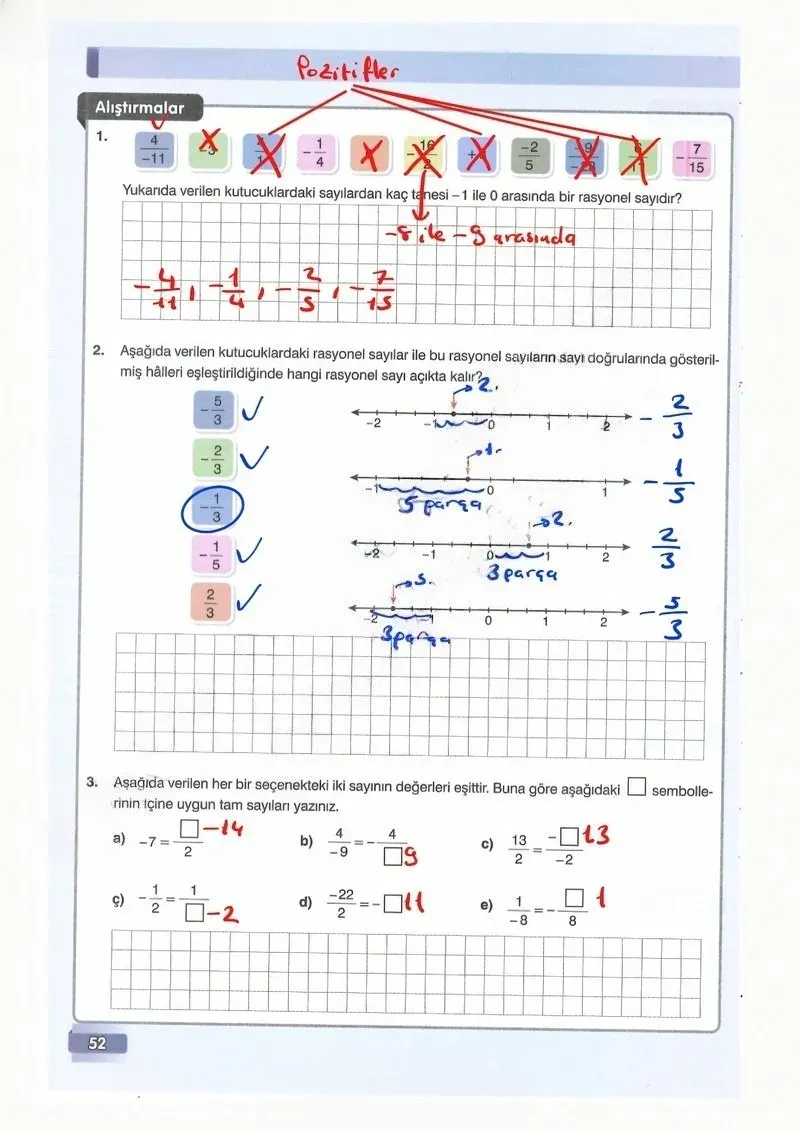 Pozitifler
Alıştırmalar
1. 4/-11 -1/4 -2/5 -7/15
Yukarıda verilen kutucuklardaki sayılardan kaç tanesi –1 ile 0 arasında bir rasyonel sayıdır?
-8 ile -9 arasında
-4/11, -1/4, -2/5, -7/15
2. Aşağıda verilen kutucuklardaki rasyonel sayılar ile bu rasyonel sayıların sayı doğrularında gösteril-
miş hâlleri eşleştirildiğinde hangi rasyonel sayı açıkta kalır?
2.
-5/3 -2 -1 0 1 2 -2/3
-2/3 1.
-1 0 1 -1/5
-1/3 5 parça
2.
-1/5 -2 -1 0 1 2 2/3
3 parça
5.
2/3 -2 -1 0 1 2 -5/3
3 parça
3. Aşağıda verilen her bir seçenekteki iki sayının değerleri eşittir. Buna göre aşağıdaki □ sembolle-
rinin içine uygun tam sayıları yazınız.
a) -7 = □/2 -14 b) 4/-9 = -4/□ 9 c) 13/2 = -□/-2 13
ç) -1/2 = 1/□ -2 d) -22/2 = -□ 11 e) 1/-8 = -□/8 1
52